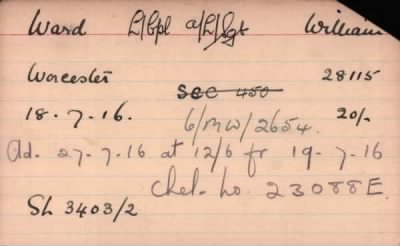 Ward L/Cpl a/L/Sgt William
Worcester 28115
SEC 450
18-7-16. 20/-
6/MW/2654.
Ad. 27-7-16 at 12/6 fr 19-7-16
Chel. No. 23088E.
SL 3403/2